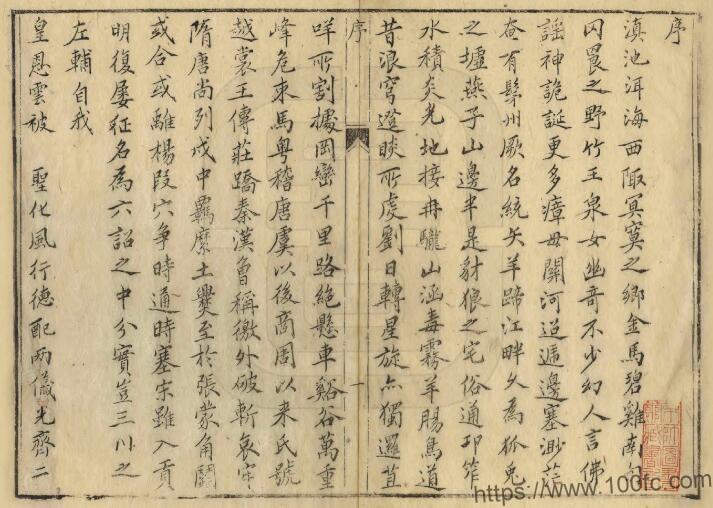 序
滇池洱海西陬冥寞之鄉金馬碧雞南
罔罠之野竹王泉女幽奇不少幻人言佛
謡神詭誕更多瘴母關河迢遞邊塞渺茫
奄有髳州厥名統矢羊蹄江畔久為狐兔
之墟燕子山邊半是豺狼之宅俗通邛笮
水積炎光地接冉駹山涵毒霧羊腸鳥道
昔浪穹邆睒所虔劉日轉星旋亦獨邏苴
序
咩所割據岡巒千里路絕懸車谿谷萬重
峰危束馬粵稽唐虞以後商周以来氏號
越裳王傳莊蹻秦漢曾稱徼外破斬哀牢
隋唐尚列戎中羈縻土爨至於張蒙角鬪
或合或離楊段穴争時通時塞宋雖入貢
明復屢征名為六詔之中分實豈三川之
左輔自我
皇恩雲被 聖化風行德配兩儀光齊二
https://www.100fc.com